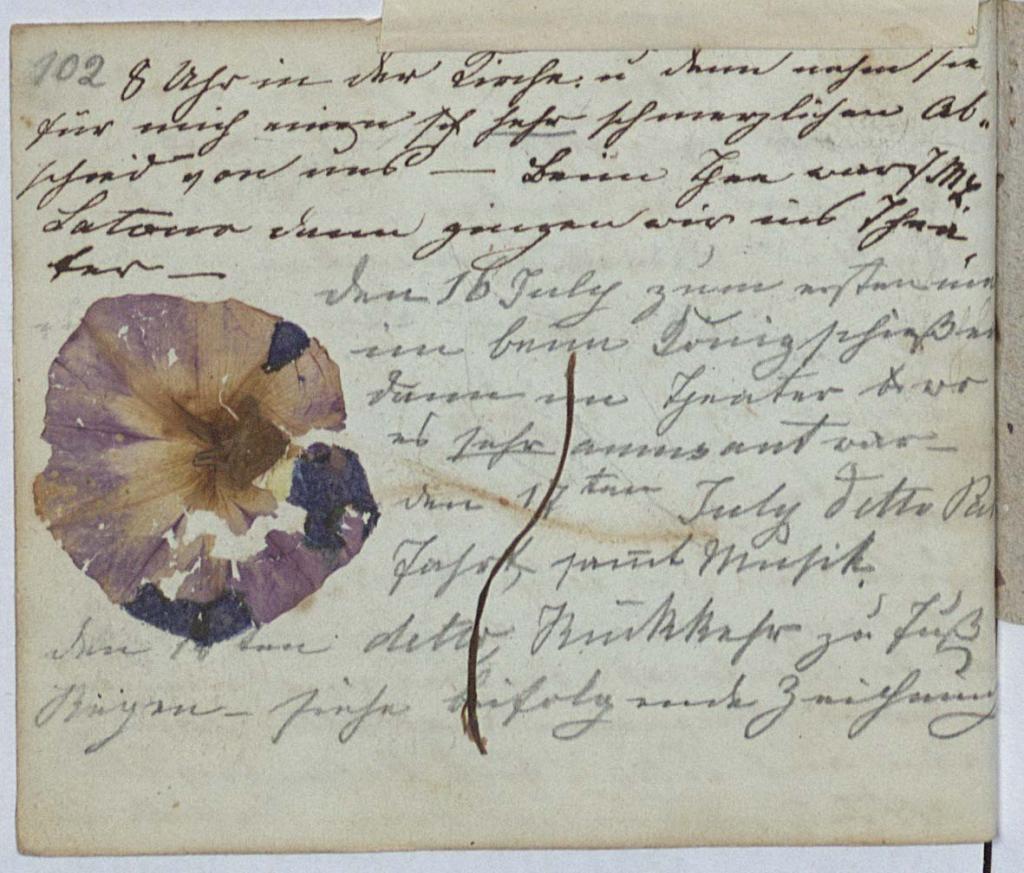 102
8 Uhr in der Kirche. u denn nahm sie
für mich einen sehr schmerzlichen Ab-
schied von uns — Beim Thee war
dann gingen wir ins Thea-
ter —
den 16 July zum ersten
im beim Königschießen
dann im Theater wo
es sehr amusant war —
den 17ten July detto
Fahrt samt Musik.
den ten detto, Rückkehr zu Fuß
Regen — siehe beifolgende Zeichnung